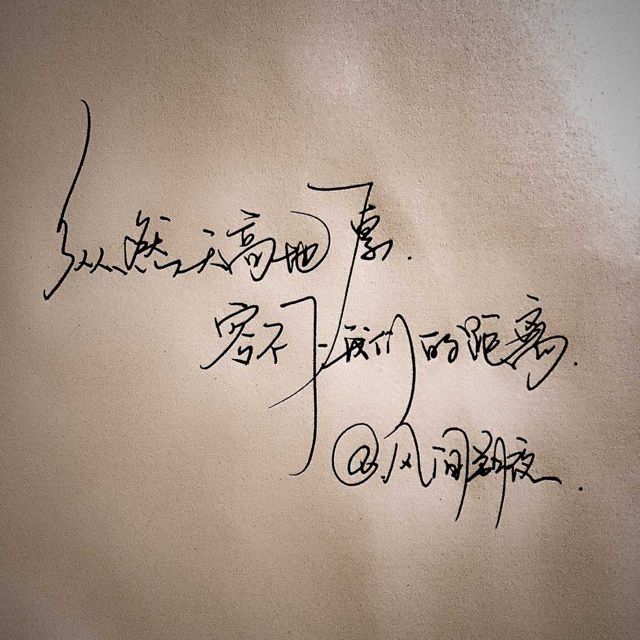 纵然天高地厚.
容不下我们的距离.
@风间朔夜.